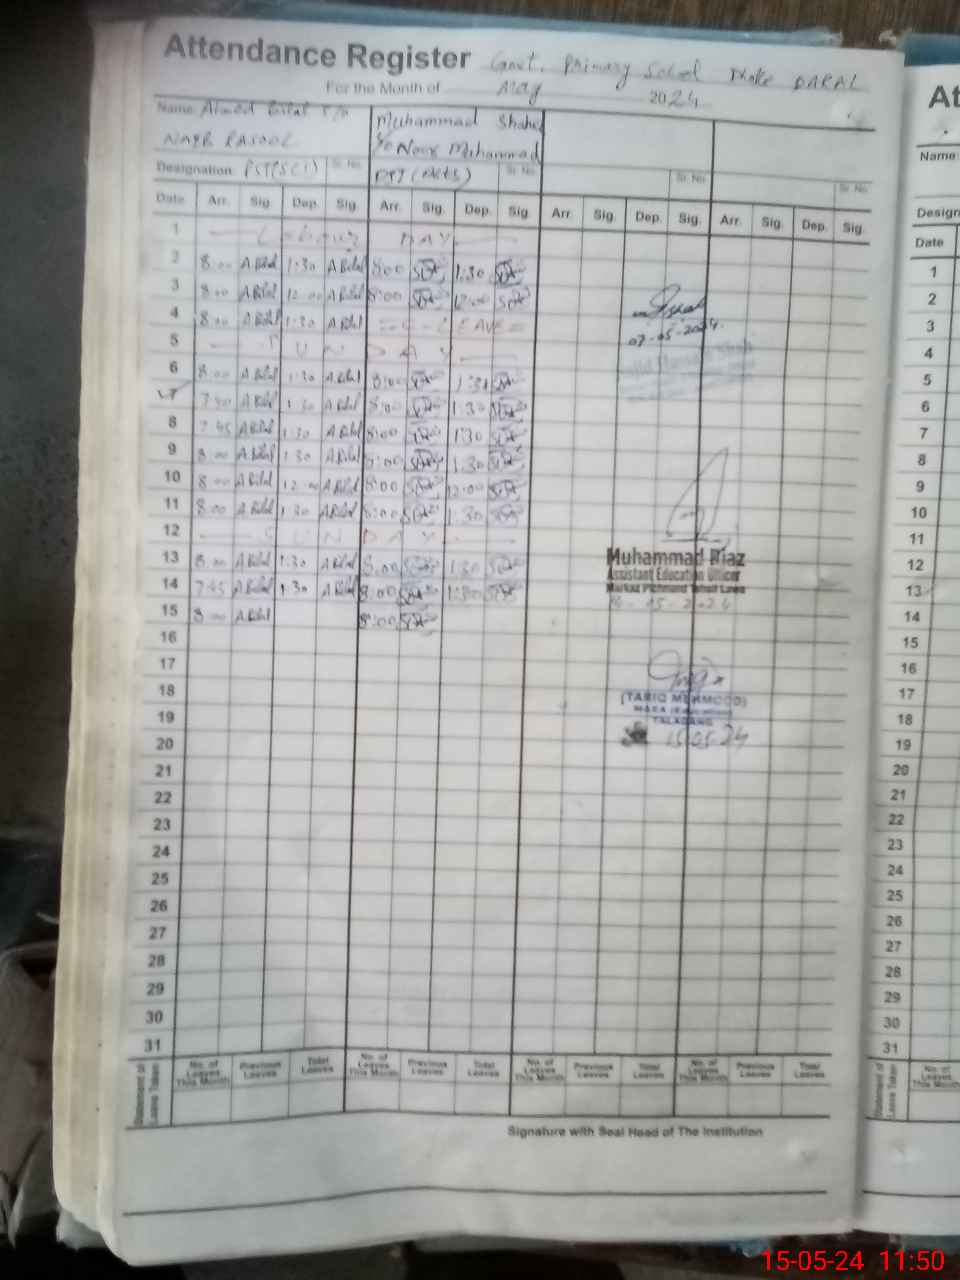 Attendance Register Govt. Primary School Dhoke DARAL
For the Month of May 2024
Name: Ahmed Bilal S/o
RASOOL
Muhammad Shahe
S/o Noor Muhammad
Designation: PST(SCI) Sr. No.
PST (Arts) Sr. No.
Sr. No.
Sr. No.
Date Arr. Sig. Dep. Sig. Arr. Sig. Dep. Sig. Arr. Sig. Dep. Sig. Arr. Sig. Dep. Sig.
1 Labour DAY
2 8:00 A Bilal 1:30 A Bilal 8:00 1:30
3 8:00 A Bilal 12:00 A Bilal 8:00 12:00
4 8:00 A Bilal 1:30 A Bilal LEAVE
5 SUNDAY
6 8:00 A Bilal 1:30 A Bilal 8:00 1:30
7:40 A Bilal 1:30 A Bilal 8:00 1:30
8 7:45 A Bilal 1:30 A Bilal 8:00 1:30
9 8:00 A Bilal 1:30 A Bilal 8:00 1:30
10 8:00 A Bilal 12:00 A Bilal 8:00 12:00
11 8:00 A Bilal 1:30 A Bilal 8:00 1:30
12 SUNDAY
13 8:00 A Bilal 1:30 A Bilal 8:00 1:30
14 7:45 A Bilal 1:30 A Bilal 8:00 1:30
15 8:00 A Bilal 8:00
16
17
18
19
20
21
22
23
24
25
26
27
28
29
30
31
07-05-2024
Muhammad Riaz
Assistant Education Officer
Markaz Pichnand Tehsil Lawa
05-2024
(TARIQ MEHMOOD)
TALAGANG
15.05.24
Statement of Leave Taken
No. of Leaves This Month Previous Leaves Total Leaves No. of Leaves This Month Previous Leaves Total Leaves No. of Leaves This Month Previous Leaves Total Leaves No. of Leaves This Month Previous Leaves Total Leaves
Signature with Seal Head of The Institution
At
Name:
Design
Date
1
2
3
4
5
6
7
8
9
10
11
12
13
14
15
16
17
18
19
20
21
22
23
24
25
26
27
28
29
30
31
Statement of Leave Taken
No. of Leaves This Month
15-05-24 11:50